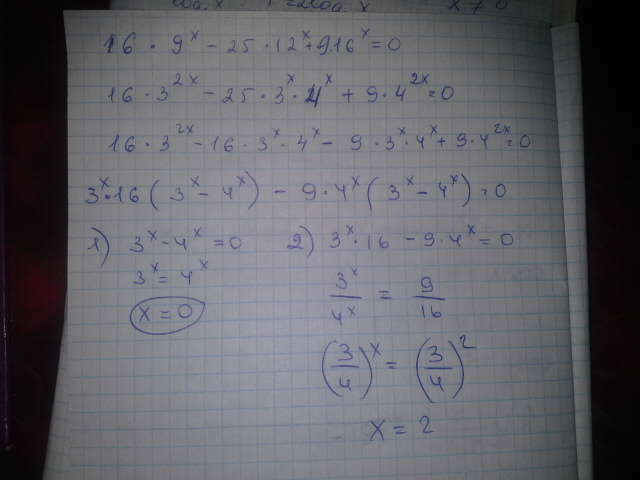 log₂ x
x ≠ 0
16 · 9ˣ − 25 · 12ˣ + 9 16ˣ = 0
16 · 3²ˣ − 25 · 3ˣ · 4ˣ + 9 · 4²ˣ = 0
16 · 3²ˣ − 16 · 3ˣ · 4ˣ − 9 · 3ˣ · 4ˣ + 9 · 4²ˣ = 0
3ˣ · 16 ( 3ˣ − 4ˣ ) − 9 · 4ˣ ( 3ˣ − 4ˣ ) = 0
1) 3ˣ − 4ˣ = 0
3ˣ = 4ˣ
x = 0
2) 3ˣ · 16 − 9 · 4ˣ = 0
3ˣ/4ˣ = 9/16
(3/4)ˣ = (3/4)²
x = 2